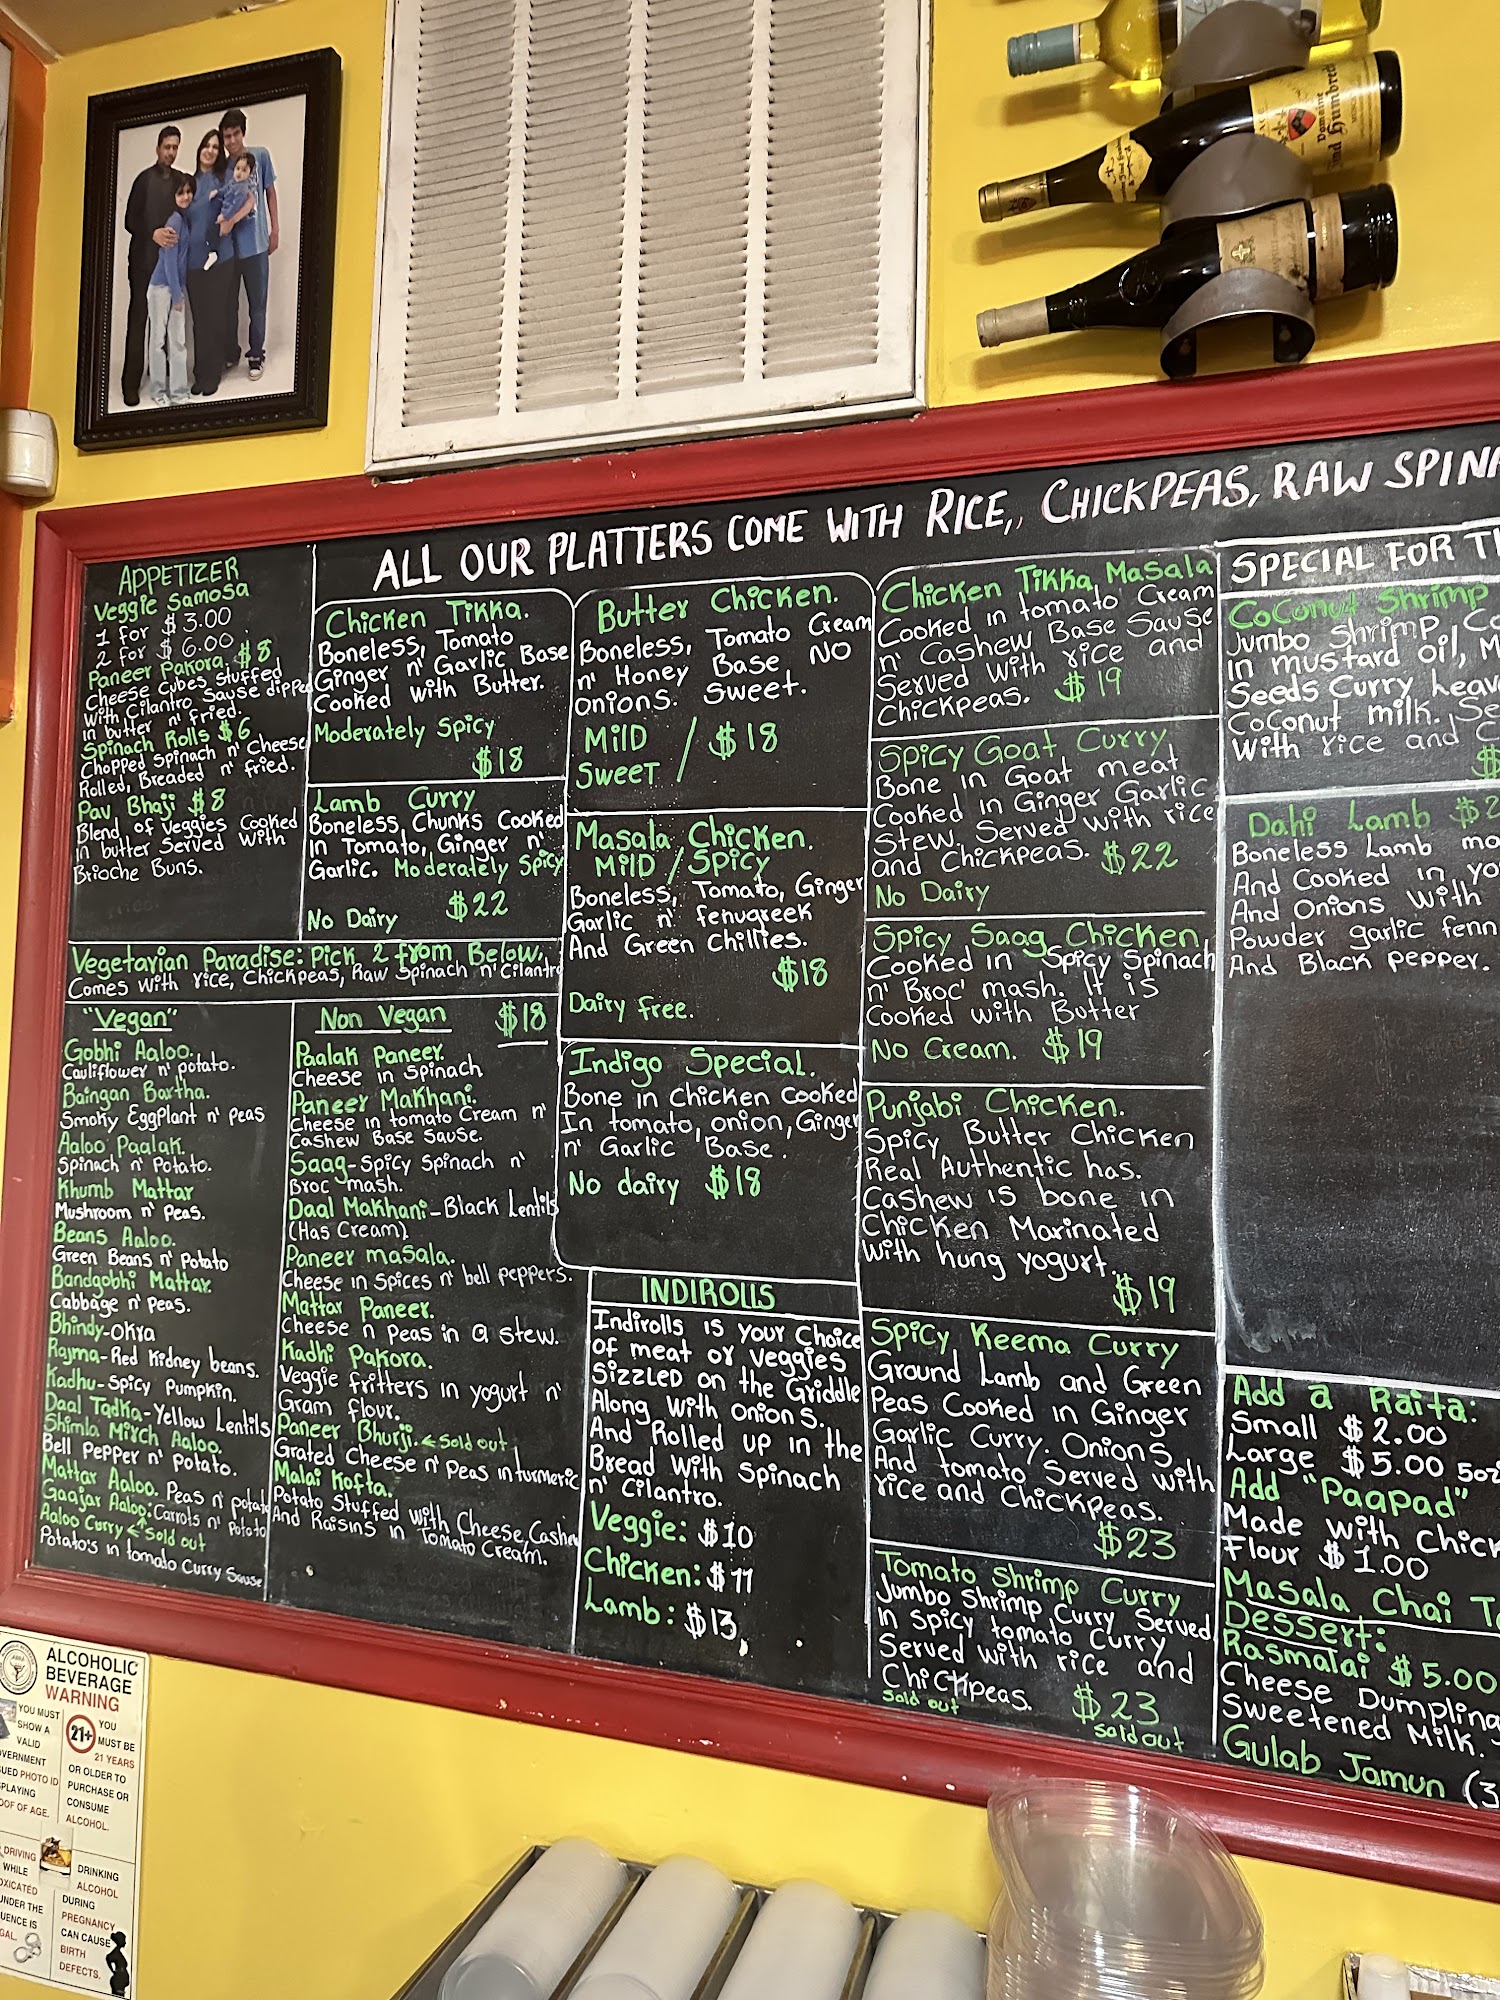 ALL OUR PLATTERS COME WITH RICE, CHICKPEAS, RAW
APPETIZER
Veggie Samosa
1 for $3.00
2 for $6.00
Paneer Pakora. $8
Cheese Cubes Stuffed
With Cilantro Sause dipped
In butter n' fried.
Spinach Rolls $6
Chopped Spinach n' Cheese
Rolled, Breaded n' fried.
Pav Bhaji $8
Blend of Veggies Cooked
In butter Served With
Brioche Buns.
Chicken Tikka.
Boneless, Tomato
Ginger n' Garlic Base
Cooked with Butter.
Moderately Spicy
$18
Lamb Curry
Boneless Chunks Cooked
In Tomato, Ginger n'
Garlic. Moderately Spicy
No Dairy $22
Butter Chicken.
Boneless, Tomato Cream
n' Honey Base, NO
onions. Sweet.
MilD / $18
SweeT
Masala Chicken.
MilD / SPicy
Boneless, Tomato, Ginger
Garlic n' fenugreek
And Green Chillies.
$18
Dairy free.
Indigo Special.
Bone in Chicken Cooked
In tomato, onion, Ginger
n' Garlic Base.
No dairy $18
Vegetarian Paradise: Pick 2 from Below,
Comes with rice, Chickpeas, Raw Spinach n' Cilantro
"Vegan"
Gobhi Aaloo.
Cauliflower n' potato.
Baingan Bartha.
Smoky EggPlant n' Peas
Aaloo Paalak.
Spinach n' Potato.
Khumb Mattar
Mushroom n' Peas.
Beans Aaloo.
Green Beans n' Potato
Bandgobhi Mattar.
Cabbage n' Peas.
Bhindy-Okra
Rajma-Red Kidney beans.
Kadhu-Spicy Pumpkin.
Daal Tadka-Yellow Lentils
Shimla Mirch Aaloo.
Bell Pepper n' Potato.
Mattar Aaloo. Peas n' potato
Gaajar Aaloo: Carrots n' Potato
Aaloo Curry ← Sold out
Potato's in tomato Curry Sause
Non Vegan $18
Paalak Paneer.
Cheese in Spinach
Paneer Makhani.
Cheese in tomato Cream n'
Cashew Base Sause.
Saag-Spicy Spinach n'
Broc mash.
Daal Makhani-Black Lentils
(Has Cream)
Paneer masala.
Cheese in Spices n' bell peppers.
Mattar Paneer.
Cheese n Peas in a stew.
Kadhi Pakora.
Veggie fritters in yogurt n'
Gram flour.
Paneer Bhurji. ← Sold out
Grated Cheese n' Peas in turmeric
Malai Kofta.
Potato Stuffed with Cheese, Cashew
And Raisins in Tomato Cream.
INDIROLLS
Indirolls is your Choice
of meat or veggies
SizzLED on the Griddle
Along With Onions.
And Rolled up in the
Bread With Spinach
n' Cilantro.
Veggie: $10
Chicken: $11
Lamb: $13
Chicken Tikka Masala
Cooked in tomato Cream
n' Cashew Base Sause
Served With rice and
Chickpeas. $19
Spicy Goat Curry
Bone in Goat meat
Cooked in Ginger Garlic
Stew. Served with rice
and Chickpeas. $22
No Dairy
Spicy Saag Chicken
Cooked in Spicy Spinach
n' Broc' mash. It is
Cooked with Butter
No Cream. $19
Punjabi Chicken.
Spicy Butter Chicken
Real Authentic has.
Cashew is bone in
Chicken Marinated
With hung yogurt.
$19
Spicy Keema Curry
Ground Lamb and Green
Peas Cooked in Ginger
Garlic Curry. Onions
And tomato Served with
rice and Chickpeas.
$23
Tomato Shrimp Curry
Jumbo Shrimp Curry Served
In Spicy tomato Curry
Served with rice and
Chickpeas. $23
Sold out
Sold out
SPECIAL FOR
Coconut Shrimp
Jumbo Shrimp,
in mustard oil,
Seeds Curry
Coconut milk.
With rice and
Dahi Lamb
Boneless Lamb
And Cooked in
And Onions With
Powder garlic
And Black pepper.
Add a Raita:
Small $2.00
Large $5.00 5oz
Add "Paapad"
Made with
Flour $1.00
Masala Chai
Dessert:
Rasmalai $5.00
Cheese Dumpling
Sweetened Milk.
Gulab Jamun (3
ALCOHOLIC
BEVERAGE
WARNING
YOU MUST
SHOW A
VALID
PHOTO ID
OF AGE.
21+
YOU
MUST BE
21 YEARS
OR OLDER TO
PURCHASE OR
CONSUME
ALCOHOL.
DRIVING
WHILE
DRINKING
ALCOHOL
DURING
PREGNANCY
CAN CAUSE
BIRTH
DEFECTS.